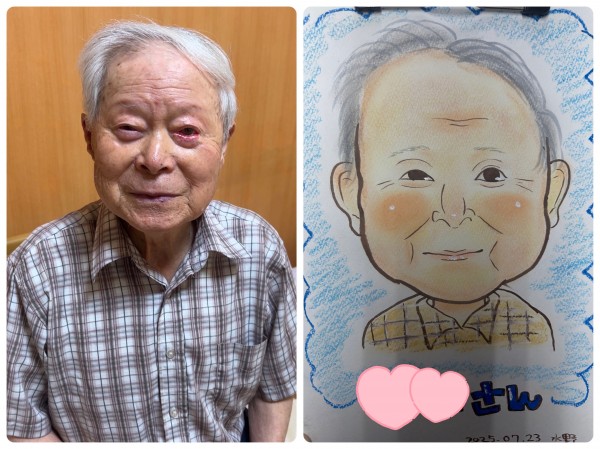 さん
2025.07.23 水野